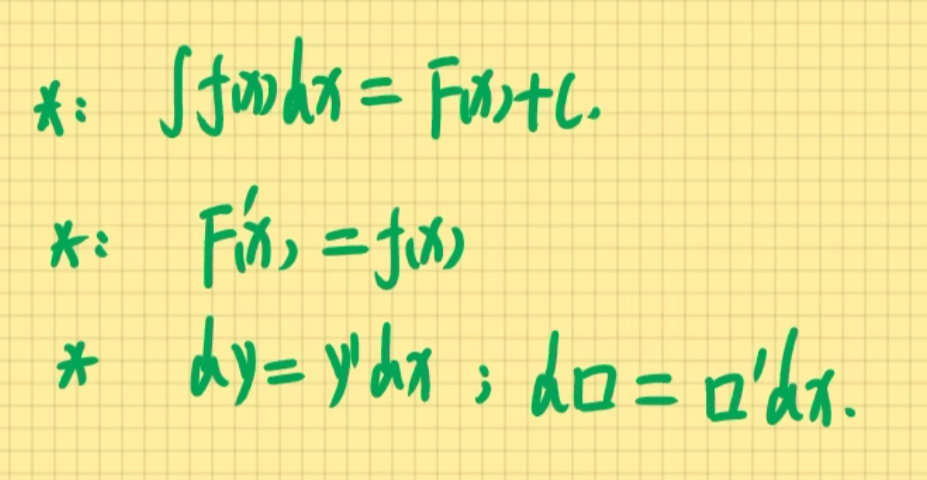 *: ∫f(x)dx = F(x)+C.
*: F'(x) = f(x)
* dy = y'dx ; d□ = □'dx.